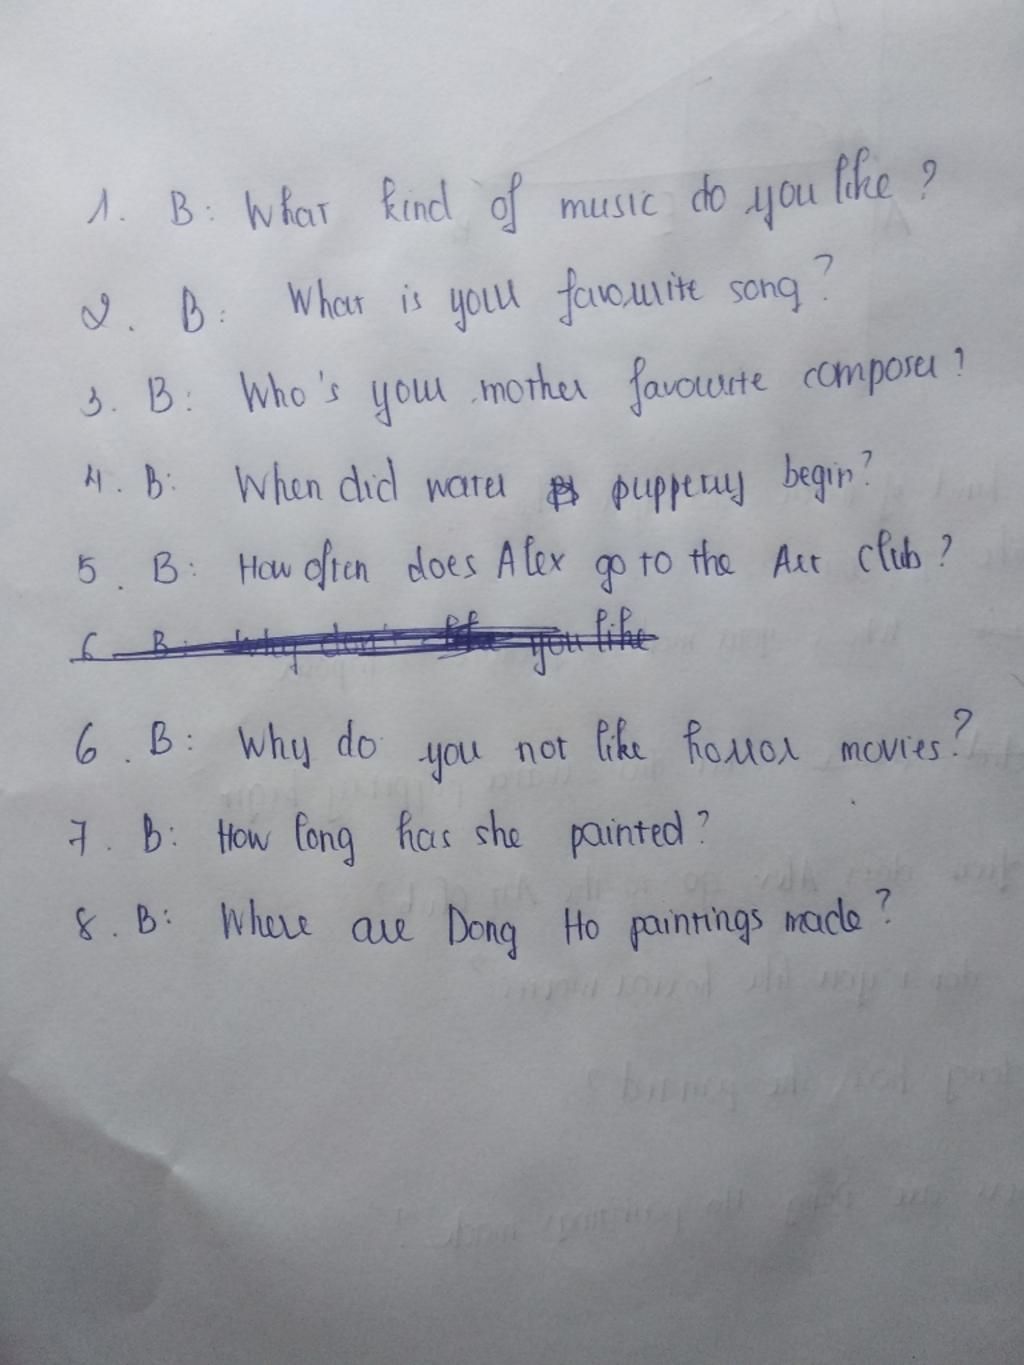 1. B: What kind of music do you like?
2. B: What is your favourite song?
3. B: Who's your mother favourite composer?
4. B: When did water puppetry begin?
5. B: How often does Alex go to the Art club?
6 B: Why don't like you like
6. B: Why do you not like horror movies?
7. B: How long has she painted?
8. B: Where are Dong Ho paintings made?